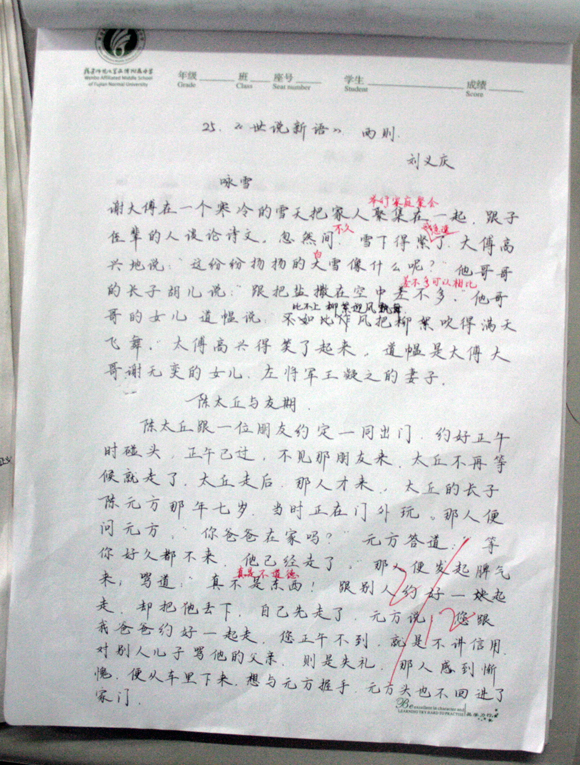 Wenbo Affiliated Middle School
of Fujian Normal University
年级 班 座号 学生 成绩
Grade Class Seat number Student Score
25.《世说新语》两则.
刘义庆
咏雪
谢大傅在一个寒冷的雪天把家人聚集在一起. 跟子
侄辈的人谈论诗文。忽然间. 雪下得紧了. 大傅高
不久
兴地说:"这纷纷扬扬的大雪像什么呢?"他哥哥
白
差不多可以相比
的长子胡儿说:"跟把盐撒在空中差不多."他哥
比不上 柳絮迎风飘舞
哥的女儿道韫说. 不如比作风把柳絮吹得满天
飞舞." 太傅高兴得笑了起来。道韫是太傅大
哥谢无奕的女儿. 左将军王凝之的妻子.
陈太丘与友期.
陈太丘跟一位朋友约定一同出门. 约好正午
时碰头. 正午已过, 不见那朋友来. 太丘不再等
候就走了. 太丘走后. 那人才来. 太丘的长子
陈元方那年七岁. 当时正在门外玩。那人便
问元方. "你爸爸在家吗?" 元方答道: "等
你好久都不来. 他已经走了." 那人便发起脾气
真是不道德
来, 骂道:"真不是东西! 跟别人约好一块起
走. 却把他丢下. 自己先走了. 元方说 "您跟
我爸爸约好一起走. 您正午不到. 就是不讲信用.
对别人儿子骂他的父亲. 则是失礼. 那人感到惭
愧. 便从车里下来. 想与元方握手. 元方头也不回进了
家门.